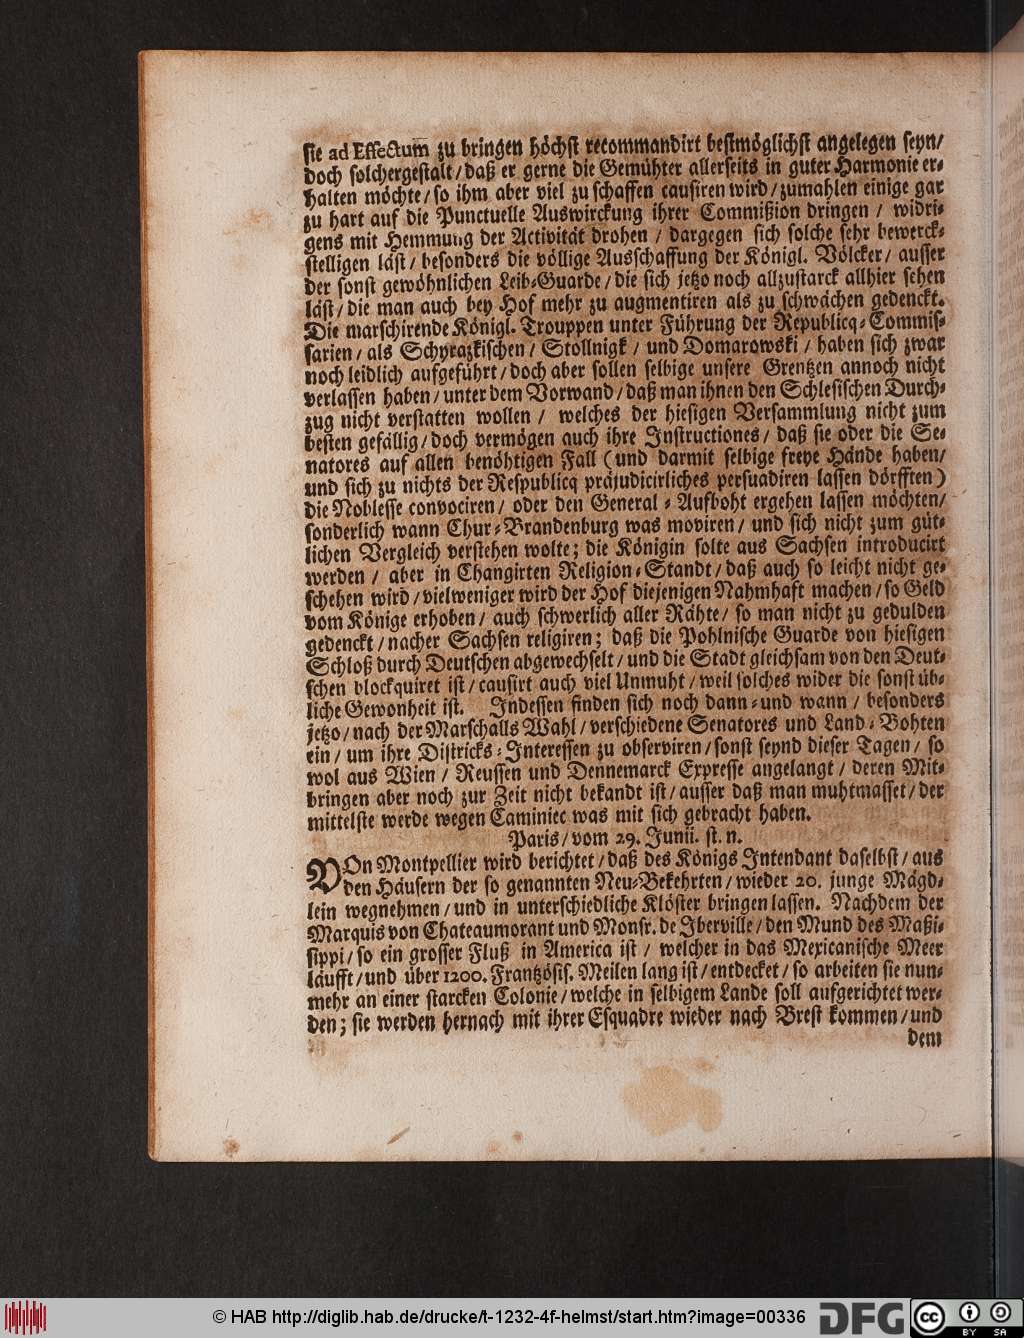 sie ad Effectum zu bringen höchst recommandirt bestmöglichst angelegen seyn/
doch solchergestalt/ daß er gerne die Gemühter allerseits in guter Harmonie er-
halten möchte/ so ihm aber viel zu schaffen causiren wird/ zumahlen einige gar
zu hart auf die Punctuelle Auswirckung ihrer Commißion dringen/ widri-
gens mit Hemmung der Activität drohen/ dargegen sich solche sehr bewerck-
stelligen läst/ besonders die völlige Ausschaffung der Königl. Völcker/ ausser
der sonst gewöhnlichen Leib-Guarde/ die sich jetzo noch allzustarck allhier sehen
läst/ die man auch bey Hof mehr zu augmentiren als zu schwächen gedenckt.
Die marschirende Königl. Trouppen unter Führung der Republicq-Commis-
sarien/ als Schyrazkischen/ Stollnigk/ und Domarowski/ haben sich zwar
noch leidlich aufgeführt/ doch aber sollen selbige unsere Grentzen annoch nicht
verlassen haben/ unter dem Vorwand/ daß man ihnen den Schlesischen Durch-
zug nicht verstatten wollen/ welches der hiesigen Versammlung nicht zum
besten gefällig/ doch vermögen auch ihre Instructiones/ daß sie oder die Se-
natores auf allen benöhtigen Fall (und darmit selbige freye Hände haben/
und sich zu nichts der Respublicq präjudicirliches persuadiren lassen dörfften)
die Noblesse convociren/ oder den General-Aufboht ergehen lassen möchten/
sonderlich wann Chur-Brandenburg was moviren/ und sich nicht zum güt-
lichen Vergleich verstehen wolte; die Königin solte aus Sachsen introducirt
werden/ aber in Changirten Religion-Standt/ daß auch so leicht nicht ge-
schehen wird/ vielweniger wird der Hof diejenigen Nahmhaft machen/ so Geld
vom Könige erhoben/ auch schwerlich aller Rähte/ so man nicht zu gedulden
gedenckt/ nacher Sachsen religiren; daß die Pohlnische Guarde von hiesigen
Schloß durch Deutschen abgewechselt/ und die Stadt gleichsam von den Deut-
schen blockquiret ist/ causirt auch viel Unmuht/ weil solches wider die sonst üb-
liche Gewonheit ist. Indessen finden sich noch dann-und wann/ besonders
jetzo/ nach der Marschalls Wahl/ verschiedene Senatores und Land-Bohten
ein/ um ihre Districks-Interessen zu observiren/ sonst seynd dieser Tagen/ so
wol aus Wien/ Reussen und Dennemarck Expresse angelangt/ deren Mit-
bringen aber noch zur Zeit nicht bekandt ist/ ausser daß man muhtmasset/ der
mittelste werde wegen Caminiec was mit sich gebracht haben.
Paris/ vom 29. Junii. st. n.
VOn Montpellier wird berichtet/ daß des Königs Intendant daselbst/ aus
den Häusern der so genannten Neu-Bekehrten/ wieder 20. junge Mägd-
lein wegnehmen/ und in unterschiedliche Klöster bringen lassen. Nachdem der
Marquis von Chateaumorant und Monsr. de Iberville/ den Mund des Maßi-
sippi/ so ein grosser Fluß in America ist/ welcher in das Mexicanische Meer
läufft/ und über 1200. Frantzösis. Meilen lang ist/ entdecket/ so arbeiten sie nun-
mehr an einer starcken Colonie/ welche in selbigem Lande soll aufgerichtet wer-
den; sie werden hernach mit ihrer Esquadre wieder nach Brest kommen/ und
dem
© HAB http://diglib.hab.de/drucke/t-1232-4f-helmst/start.htm?image=00336
DFG
cc BY SA